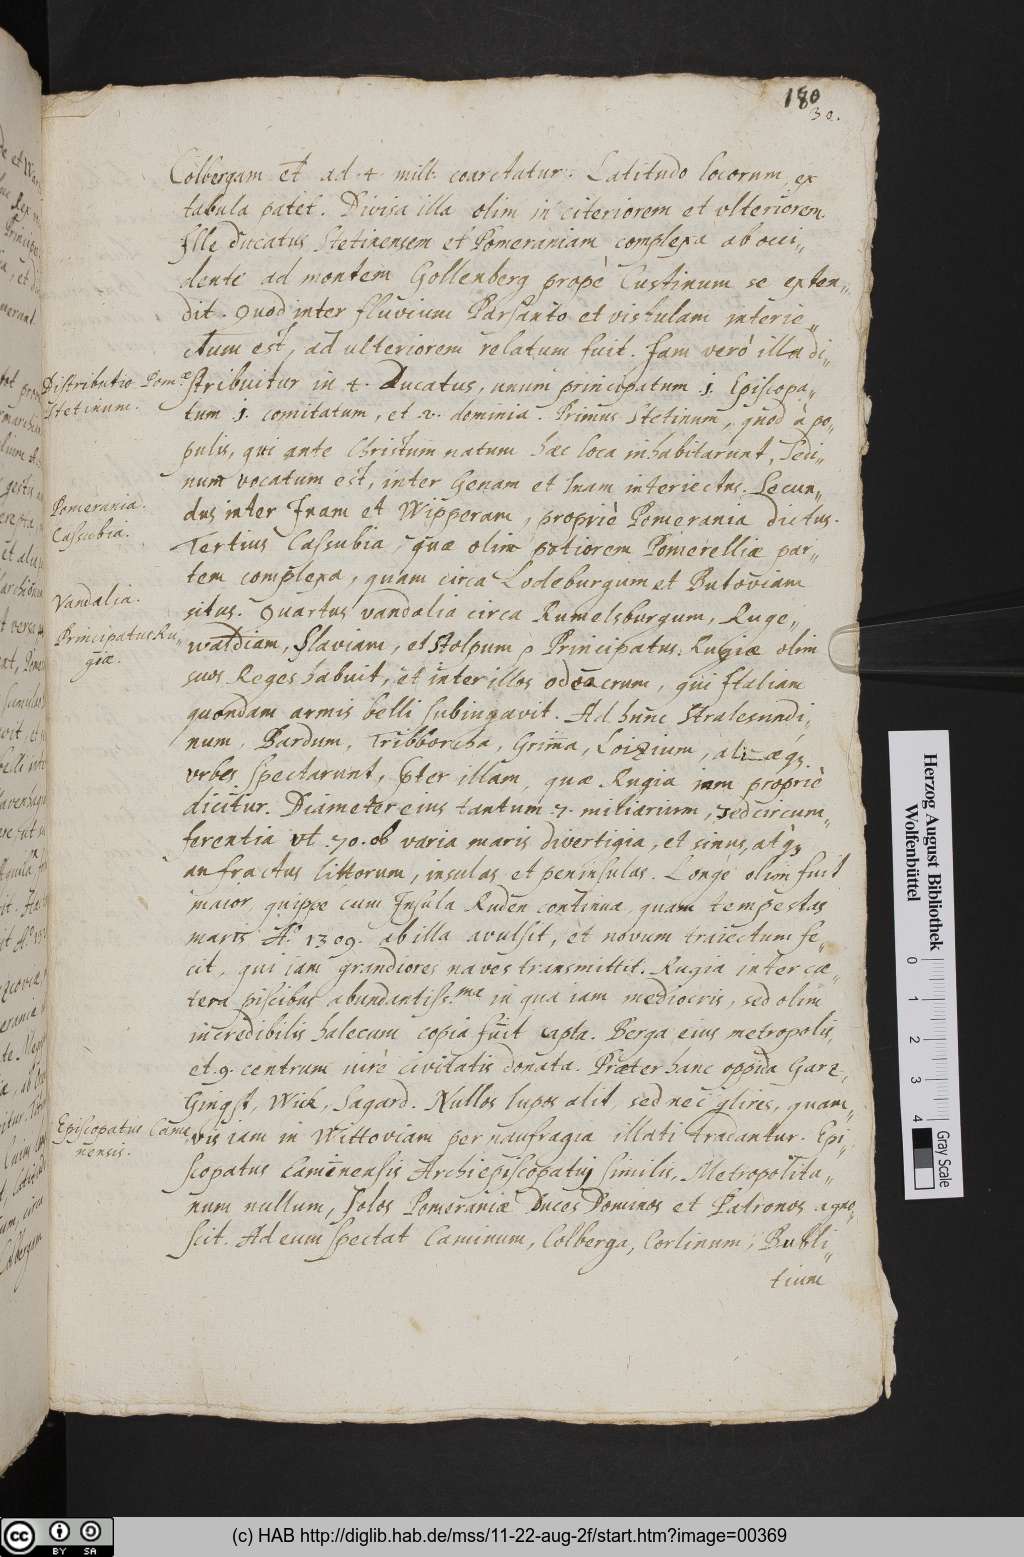 180
30.
Colbergam et ad 4 mill. coarctatur. Latitudo locorum ex
tabula patet. Divisa illa olim in citeriorem et ulteriorem.
Ille ducatus Stetinensem et Pomeraniam complexa ab occi„
dente ad montem Gollenberg propè Custinum se exten„
dit. Quod inter fluvium Parsanto et vistulam interie„
ctum est, ad ulteriorem relatum fuit. Jam verò illa di„
Distributio Pom.æ
stribuitur in 4. Ducatus, unum principatum .1. Episcopa„
Stetinum.
tum 1. comitatum, et 2. dominia. Primus Stetinum, quod à po„
pulis, qui ante Christum natum hæc loca inhabitarunt, Sedi„
num vocatum est, inter Genam et Inam interiectus. Secun„
Pomerania.
dus inter Inam et Wipperam, propriè Pomerania dictus.
Cassubia.
Tertius Cassubia, quæ olim potiorem Pomerelliæ par„
tem complexa, quam circa Lodeburgum et Butoviam
Vandalia.
situs. Quartus vandalia circa Rumelsburgum, Ruge„
Principatus Ru„
giæ.
waldiam, Slaviam, et Stolpum Principatus. Rugiæ olim
suos Reges habuit, et inter illos odoacrum, qui Italiam
quondam armis belli subiugavit. Ad hunc Stralesundi„
num, Bardum, Tribborcha, Grima, Loizium, aliæq3
urbes spectarunt, præter illam, quæ Rugia iam propriè
dicitur. Diameter eius tantum 7. miliarium, sed circum„
ferentia vt .70. ob varia maris divertigia, et sinus, atq3
anfractus littorum, insulas et peninsulas. Longè olim fuit
maior, quippe cum Insula Ruden continua, quam tempestas
maris A.o 1309. ab illa avulsit, et novum traiectum fe„
cit, qui iam grandiores naves transmittit. Rugia inter cæ„
tera piscibus abundantiss.ma in qua iam mediocris, sed olim
incredibilis halecum copia fuit capta. Berga eius metropolis,
et .9. centrum iure civitatis donata. Præter hanc oppida Garz„
Gingst, Wick, Sagard. Nullos lupos alit sed nec glires, quam„
Episcopatus Cami
nensis.
vis iam in Wittoviam per naufragia illati tradantur. Epi„
scopatus Caminensis Archiepiscopatui similis, Metropolita„
num nullum, solos Pomeraniæ Duces Dominos et Patronos agno„
scit. Ad eum spectat Caminum, Colberga, Corlinum, Bubli„
tium
Herzog August Bibliothek
Wolfenbüttel
0 1 2 3 4
Gray Scale
(c) HAB http://diglib.hab.de/mss/11-22-aug-2f/start.htm?image=00369
cc BY SA